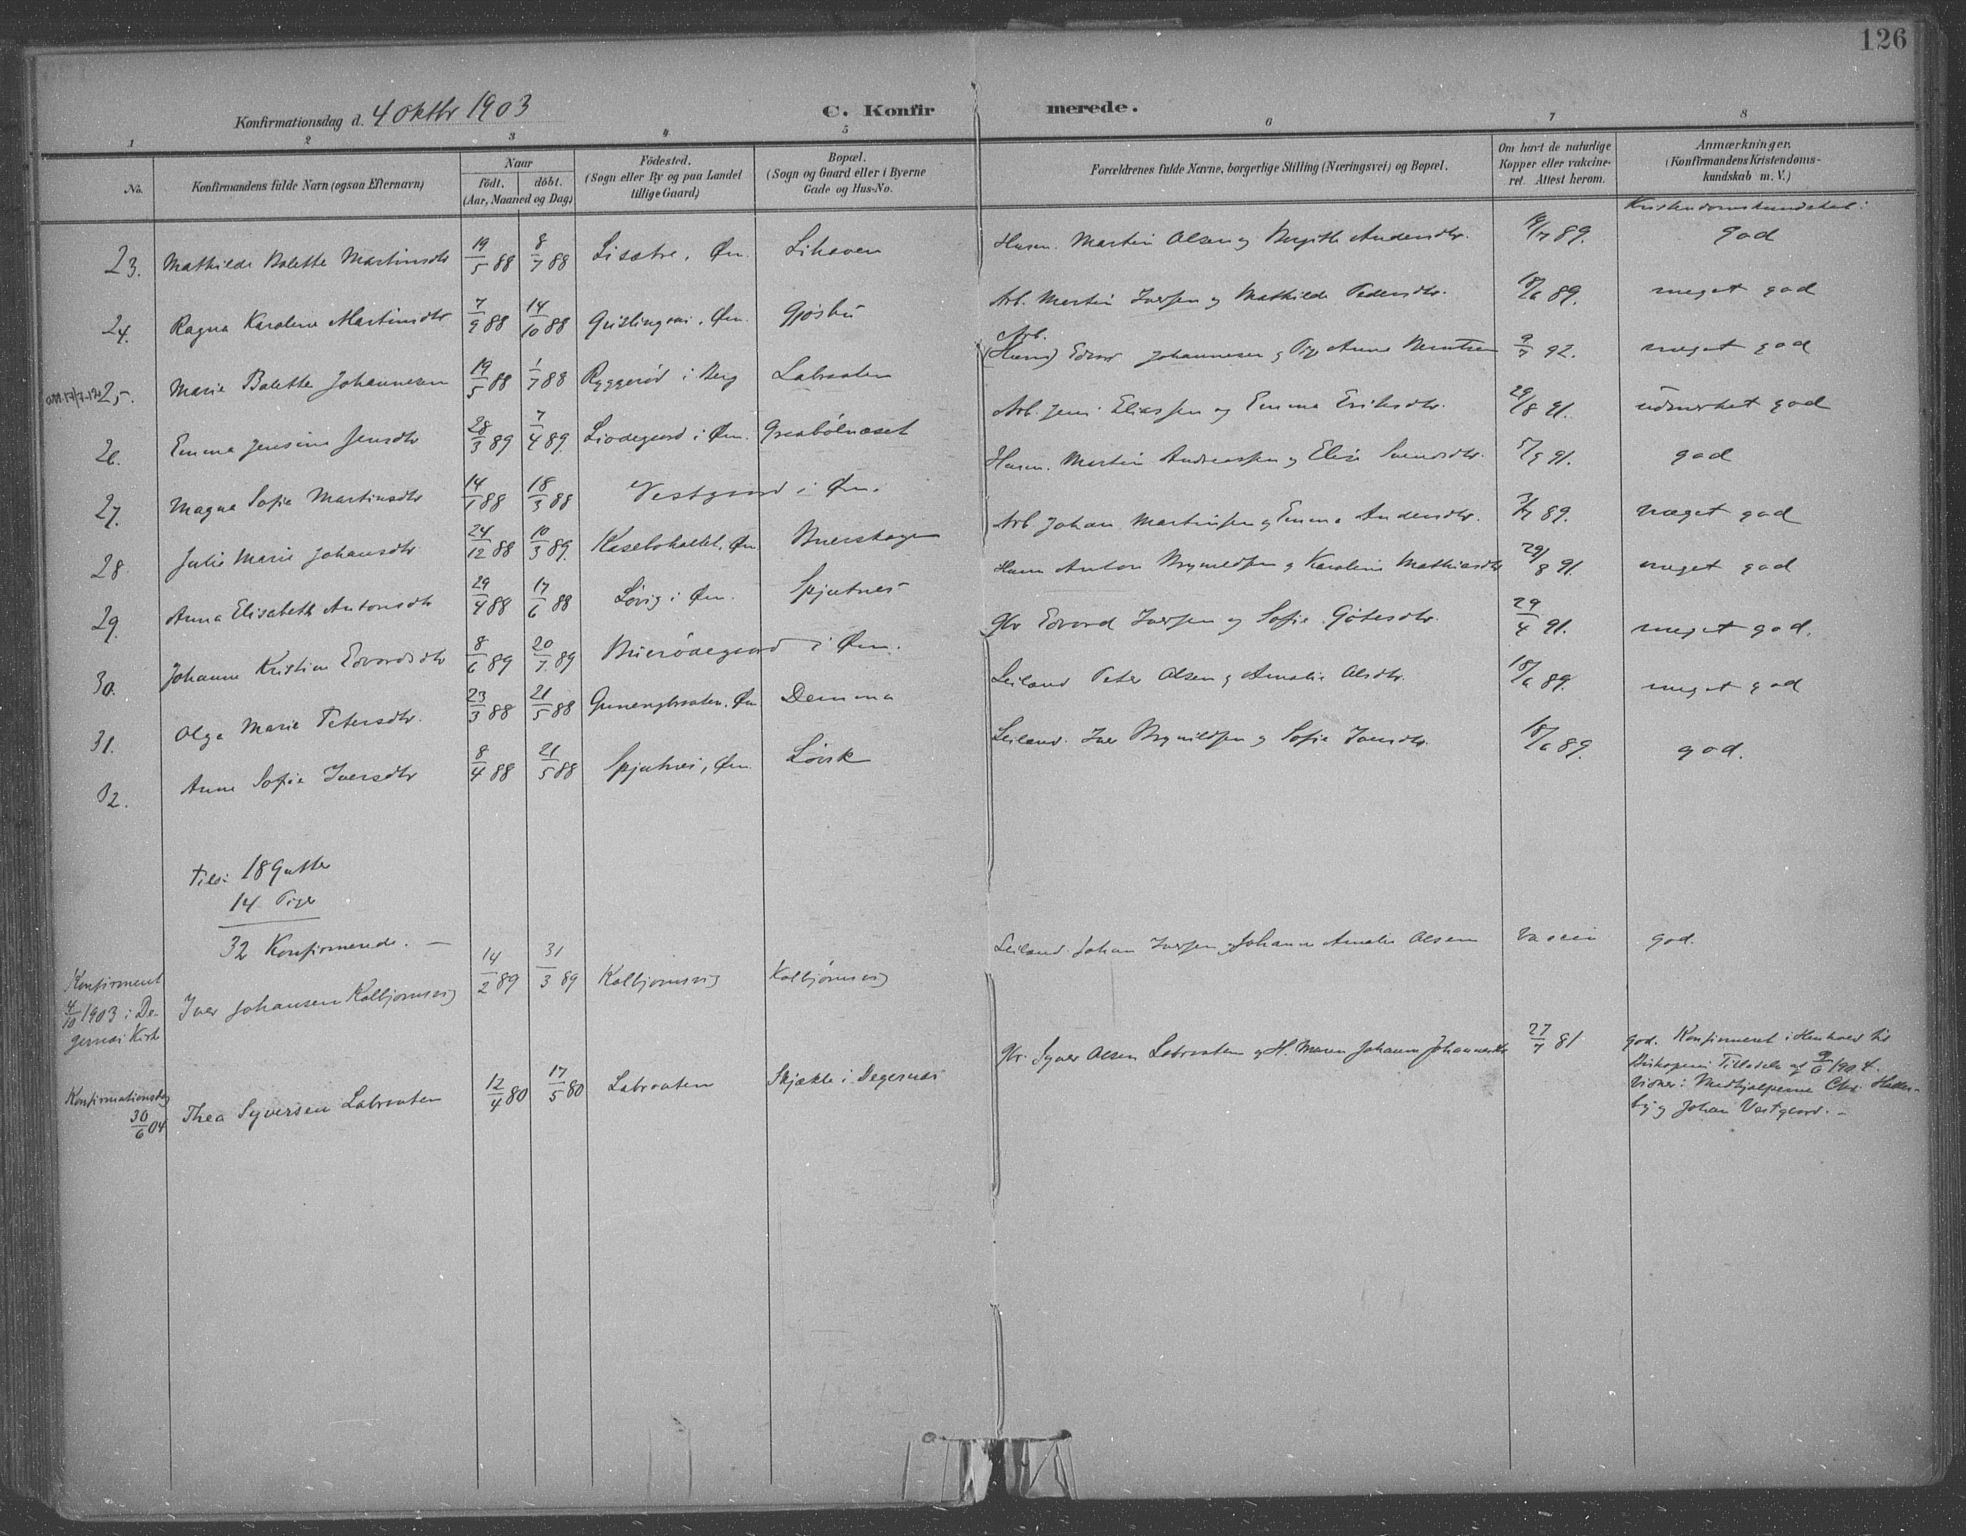 126
Konfirmationsdag d. 4 oktbr 1903 C. Konfir merede.
1 2 3 4 5 6 7 8
No. Konfirmandens fulde Navn (ogsaa Efternavn) Naar födt. döbt. (Aar, Maaned og Dag) Födested. (Sogn eller By og paa Landet tillige Gaard) Bopæl. (Sogn og Gaard eller i Byerne Gade og Hus-No. Forældrenes fulde Navne, borgerlige Stilling (Næringsvei) og Bopæl. Om havt de naturlige Kopper eller vakcineret. Attest herom. Anmærkninger. (Konfirmandens Kristendomskundskab m. V.)
Kristendomskundskab:
23. Mathilde Balette Martinsdtr 19/5 88 8/7 88 Lisætre, Øm. Lihaven Husm. Martin Olsen og Andersdtr. /7 89. god
24. Ragna Karoline Martinsdtr 7/9 88 14/10 88 Øm. Gjøsbu Arb. Martin Iversen og Mathilde Pedersdtr. 18/6 89. meget god
25. Marie Balette Johannesen 19/5 88 1/7 88 Ryggerød i Berg Labraaten Arb. (Husm) Edvard Johannesen og Pige Anne Berntsen 9/7 92. meget god
26. Emma Jensine Jensdtr 28/3 89 7/4 89. Liødegaard i Øm. Graabølnæset Arb. Jens Eliassen og Emma Eriksdtr. 29/8 91. udmerket god
27. Magna Sofie Martinsdtr 14/1 88 18/3 88 Vestgaard i Øm. Husm. Martin Andreassen og Elise Svendsdtr. 5/9 91. god
28. Julie Marie Johansdtr 24/12 88 10/3 89. Kasebohaltet, Øm Buerskogen Arb Johan Martinsen og Emma Andersdtr. 3/7 89. meget god
29. Anna Elisabeth Antonsdtr 29/4 88 17/6 88 Løvig i Øm. Spjutnes Husm Anton Brynildsen og Karoline Mathiasdtr 29/8 91. meget god
30. Johanne Kristine Edvardsdtr 8/6 89 20/7 89 Buerødegaard i Øm. Gbr Edvard Iversen og Sofie Gøtesdtr. 29/4 91. meget god.
31. Olga Marie Petersdtr. 23/3 88 21/5 88 Gunnengbraaten, Øm Demma Leiland Peter Olsen og Amalie Olsdtr. 18/6 89. meget god
32. Anne Sofie Iversdtr 8/4 88 21/5 88 Spjutnes, Øm. Løvsk Leiland. Iver Brynildsen og Sofie Iversdtr. 18/6 89. god.
Tils: 18 Gutter
14 Piger
32 Konfirmerede. —
Konfirmeret 4/10 1903 i Degernæs Kirke Iver Johansen Kolbjørnsvig 14/2 89 31/3 89 Kolbjørnsvig Kolbjørnsvig Leiland Johan Iversen og Johanne Amalie Olsen Vaccin god.
Konfirmationsdag 30/6 04 Thea Syversen Labraaten 12/4 80 17/5 80 Labraaten Skjækle i Degernæs Gbr. Syver Olsen Labraaten og H. Maren Johanne Johannesdtr 27/7 81 god. Konfirmeret i Henhold til
Biskopens Tilladelse af 9/6 1904.
Vidner: Medhjælperne Chr. Heller-
by og Johan Vestgaard. —